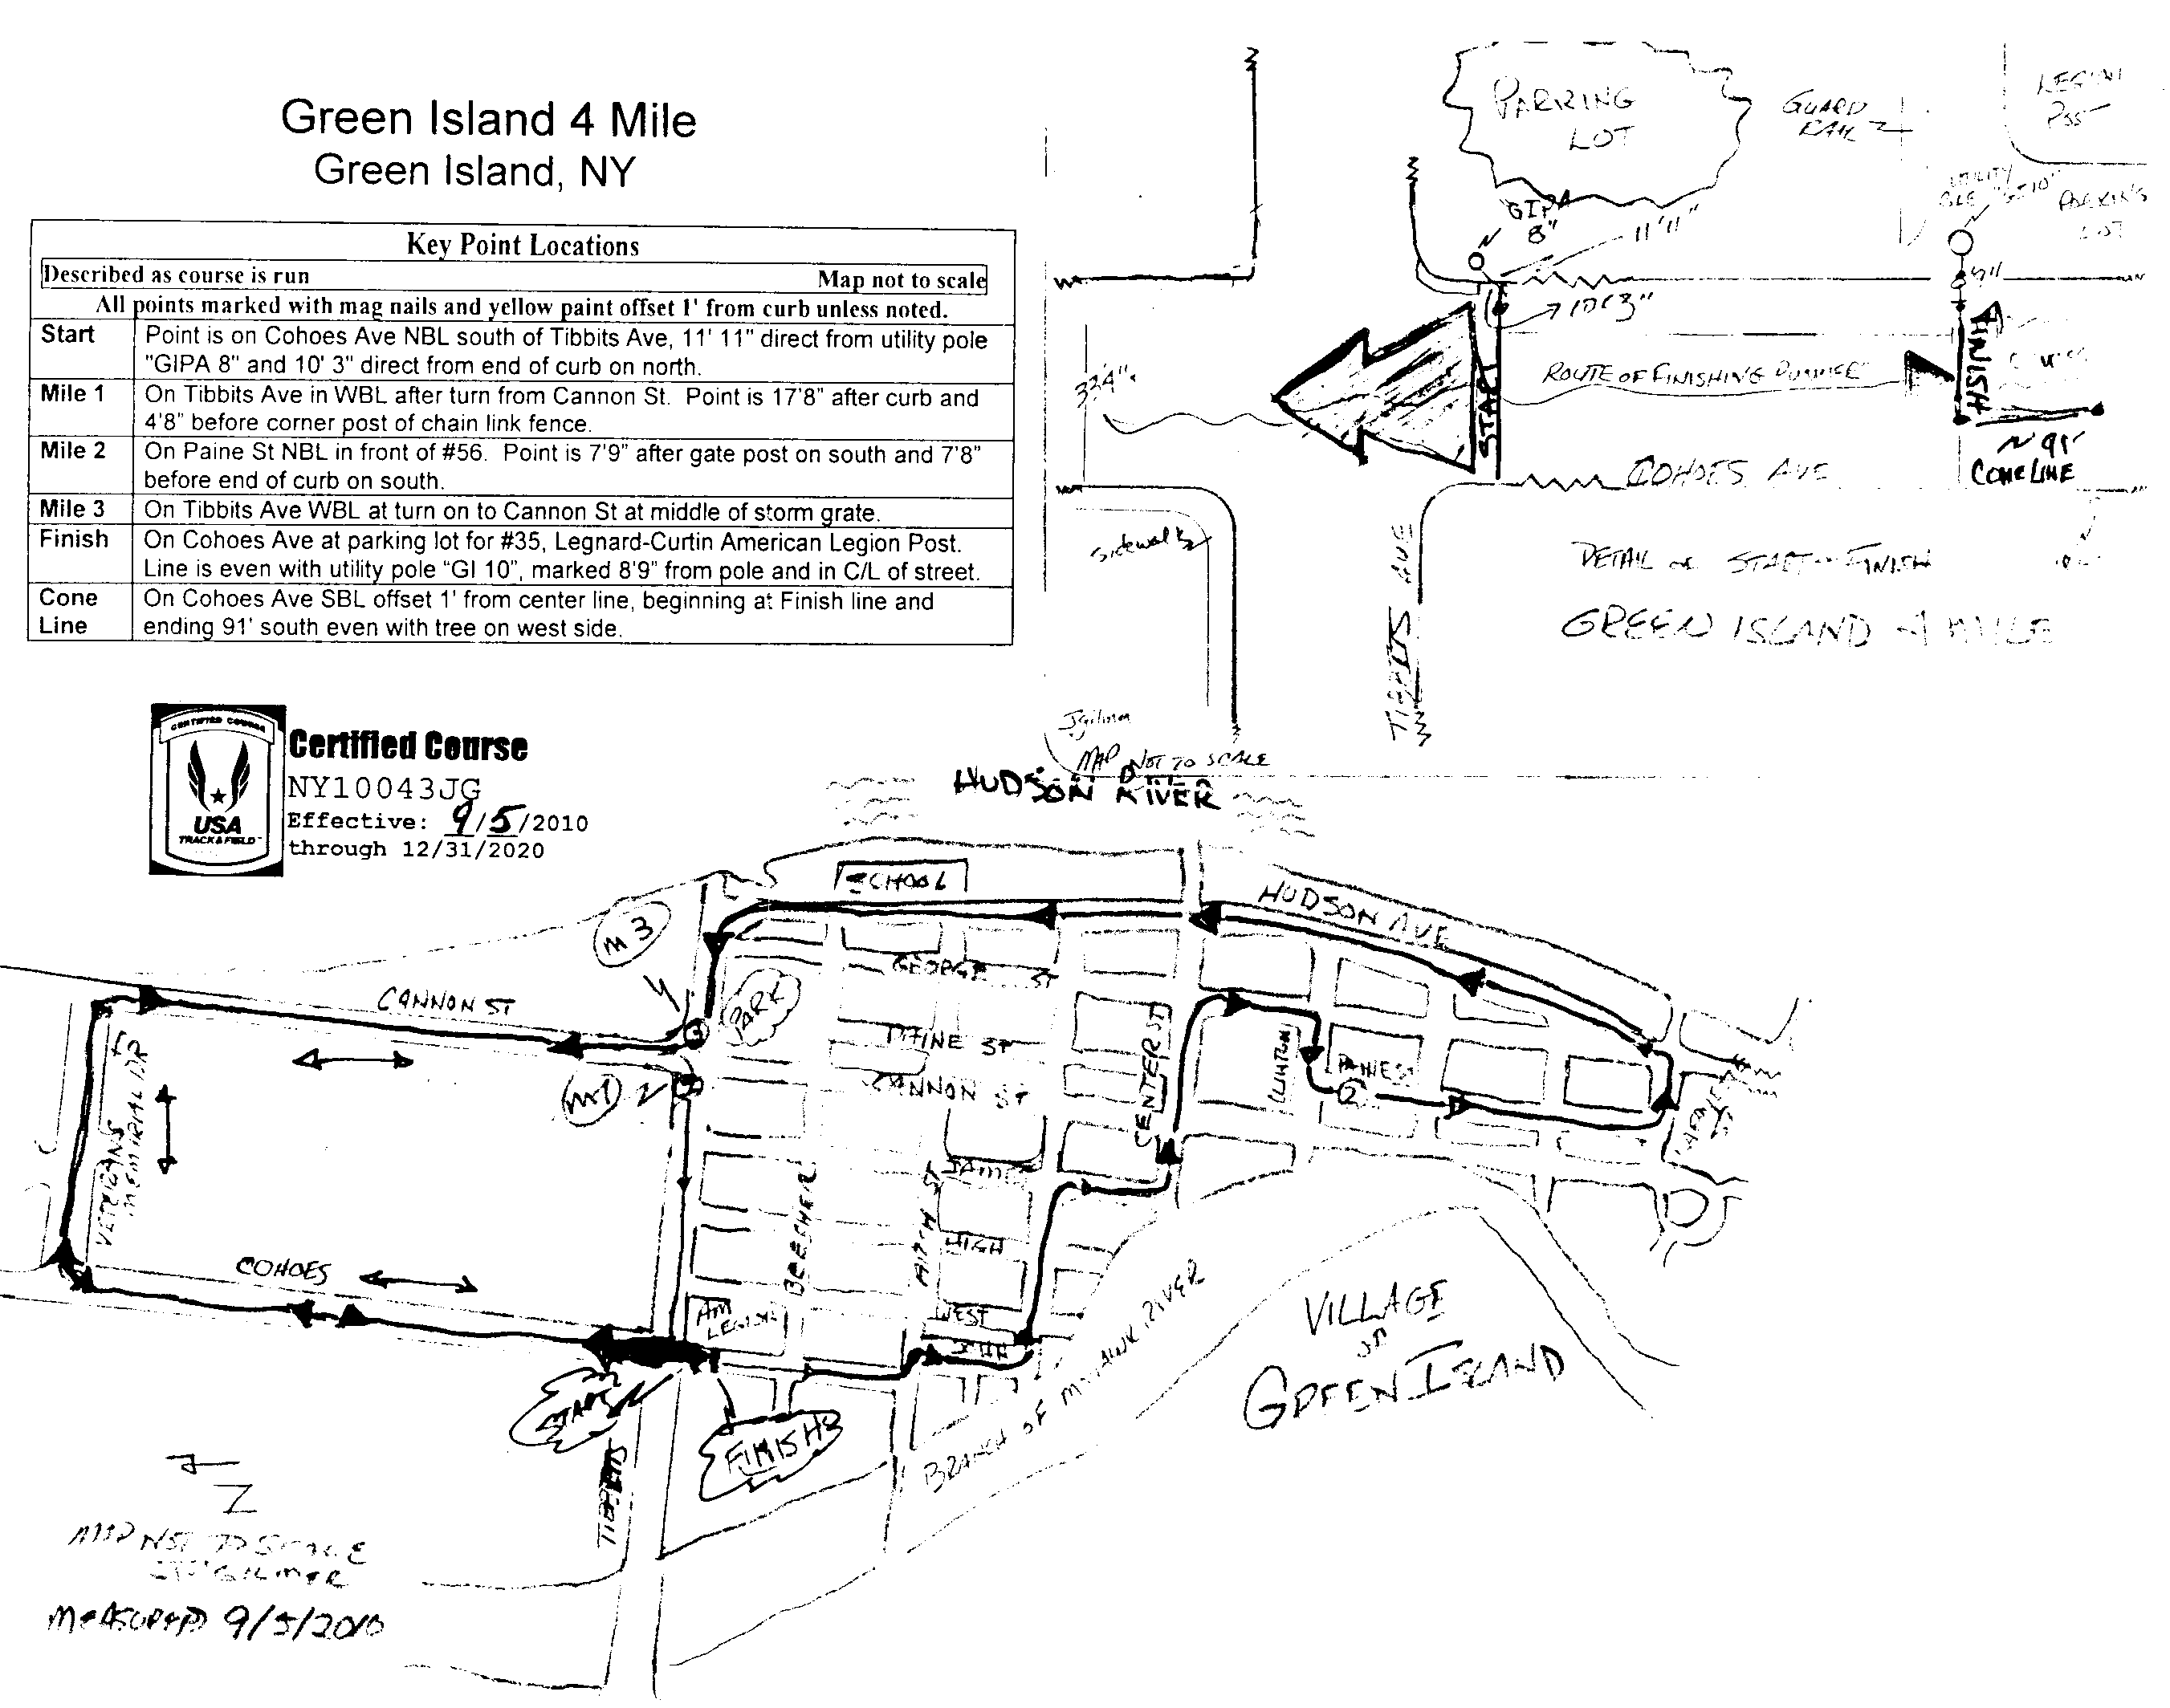 Green Island 4 Mile
Green Island, NY
Key Point Locations
Described as course is run Map not to scale
All points marked with mag nails and yellow paint offset 1' from curb unless noted.
Start Point is on Cohoes Ave NBL south of Tibbits Ave, 11' 11" direct from utility pole
"GIPA 8" and 10' 3" direct from end of curb on north.
Mile 1 On Tibbits Ave in WBL after turn from Cannon St. Point is 17'8" after curb and
4'8" before corner post of chain link fence.
Mile 2 On Paine St NBL in front of #56. Point is 7'9" after gate post on south and 7'8"
before end of curb on south.
Mile 3 On Tibbits Ave WBL at turn on to Cannon St at middle of storm grate.
Finish On Cohoes Ave at parking lot for #35, Legnard-Curtin American Legion Post.
Line is even with utility pole "GI 10", marked 8'9" from pole and in C/L of street.
Cone On Cohoes Ave SBL offset 1' from center line, beginning at Finish line and
Line ending 91' south even with tree on west side.
PARKING
LOT
GUARD
RAIL
LEGION
PARKING
LOT
UTILITY
GIPA
8"
11'11"
10'3"
START
FINISH
ROUTE OF FINISHING RUNNER
~ 91'
CONE LINE
COHOES AVE
Sidewalk
TIBBITS AVE
DETAIL OF START - FINISH
GREEN ISLAND 4 MILE
Jgilmer
MAP NOT TO SCALE
CERTIFIED COURSE
USA
TRACK & FIELD
Certified Course
NY10043JG
Effective: 9/5/2010
through 12/31/2020
HUDSON RIVER
SCHOOL
HUDSON AVE
M 3
CANNON ST
PARK
GEORGE ST
PAINE ST
CANNON ST
CENTER ST
CLINTON
PAINE ST
2
3
M1
VETERANS
MEMORIAL DR
BEECHER
JAMES
HIGH
WEST
JOHN
COHOES
AM
LEGION
START
FINISH
TIBBITS
BRANCH OF MOHAWK RIVER
VILLAGE
OF
GREEN ISLAND
N
MAP NOT TO SCALE
GILMER
MEASURED 9/5/2010